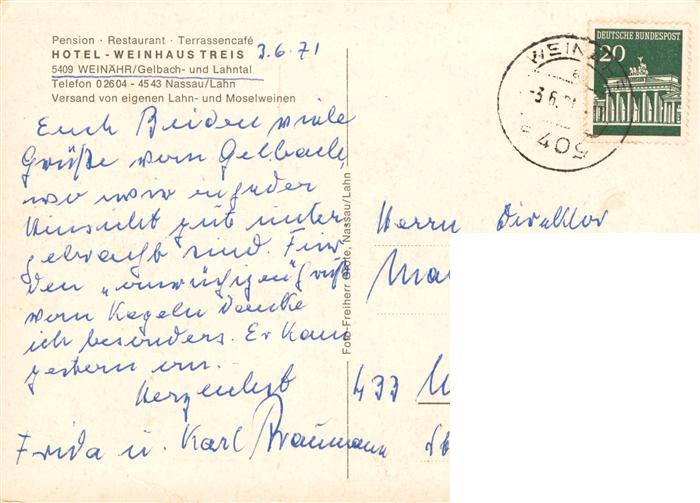 Pension · Restaurant · Terrassencafé
HOTEL - WEINHAUS TREIS
5409 WEINÄHR/Gelbach- und Lahntal
Telefon 02604 - 4543 Nassau/Lahn
Versand von eigenen Lahn- und Moselweinen
3.6.71
Euch Beiden viele
Grüße vom Gelbach,
wo wir in jeder
Hinsicht gut unter
gebracht sind. Für
den „ Gruß
vom Kegeln danke
ich besonders. Er kam
gestern an.
Herzlichst
Frida u. Karl Braumann
Foto-Freiherr Grote, Nassau/Lahn
WEINÄHR
a
-3.6.71
5409
DEUTSCHE BUNDESPOST
20
Herrn Direktor
433